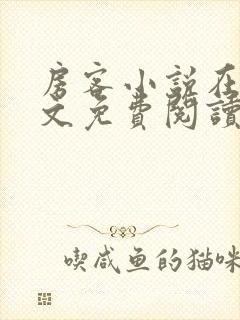 房客小说在
文免費閱讀
喫咸鱼的猫咪